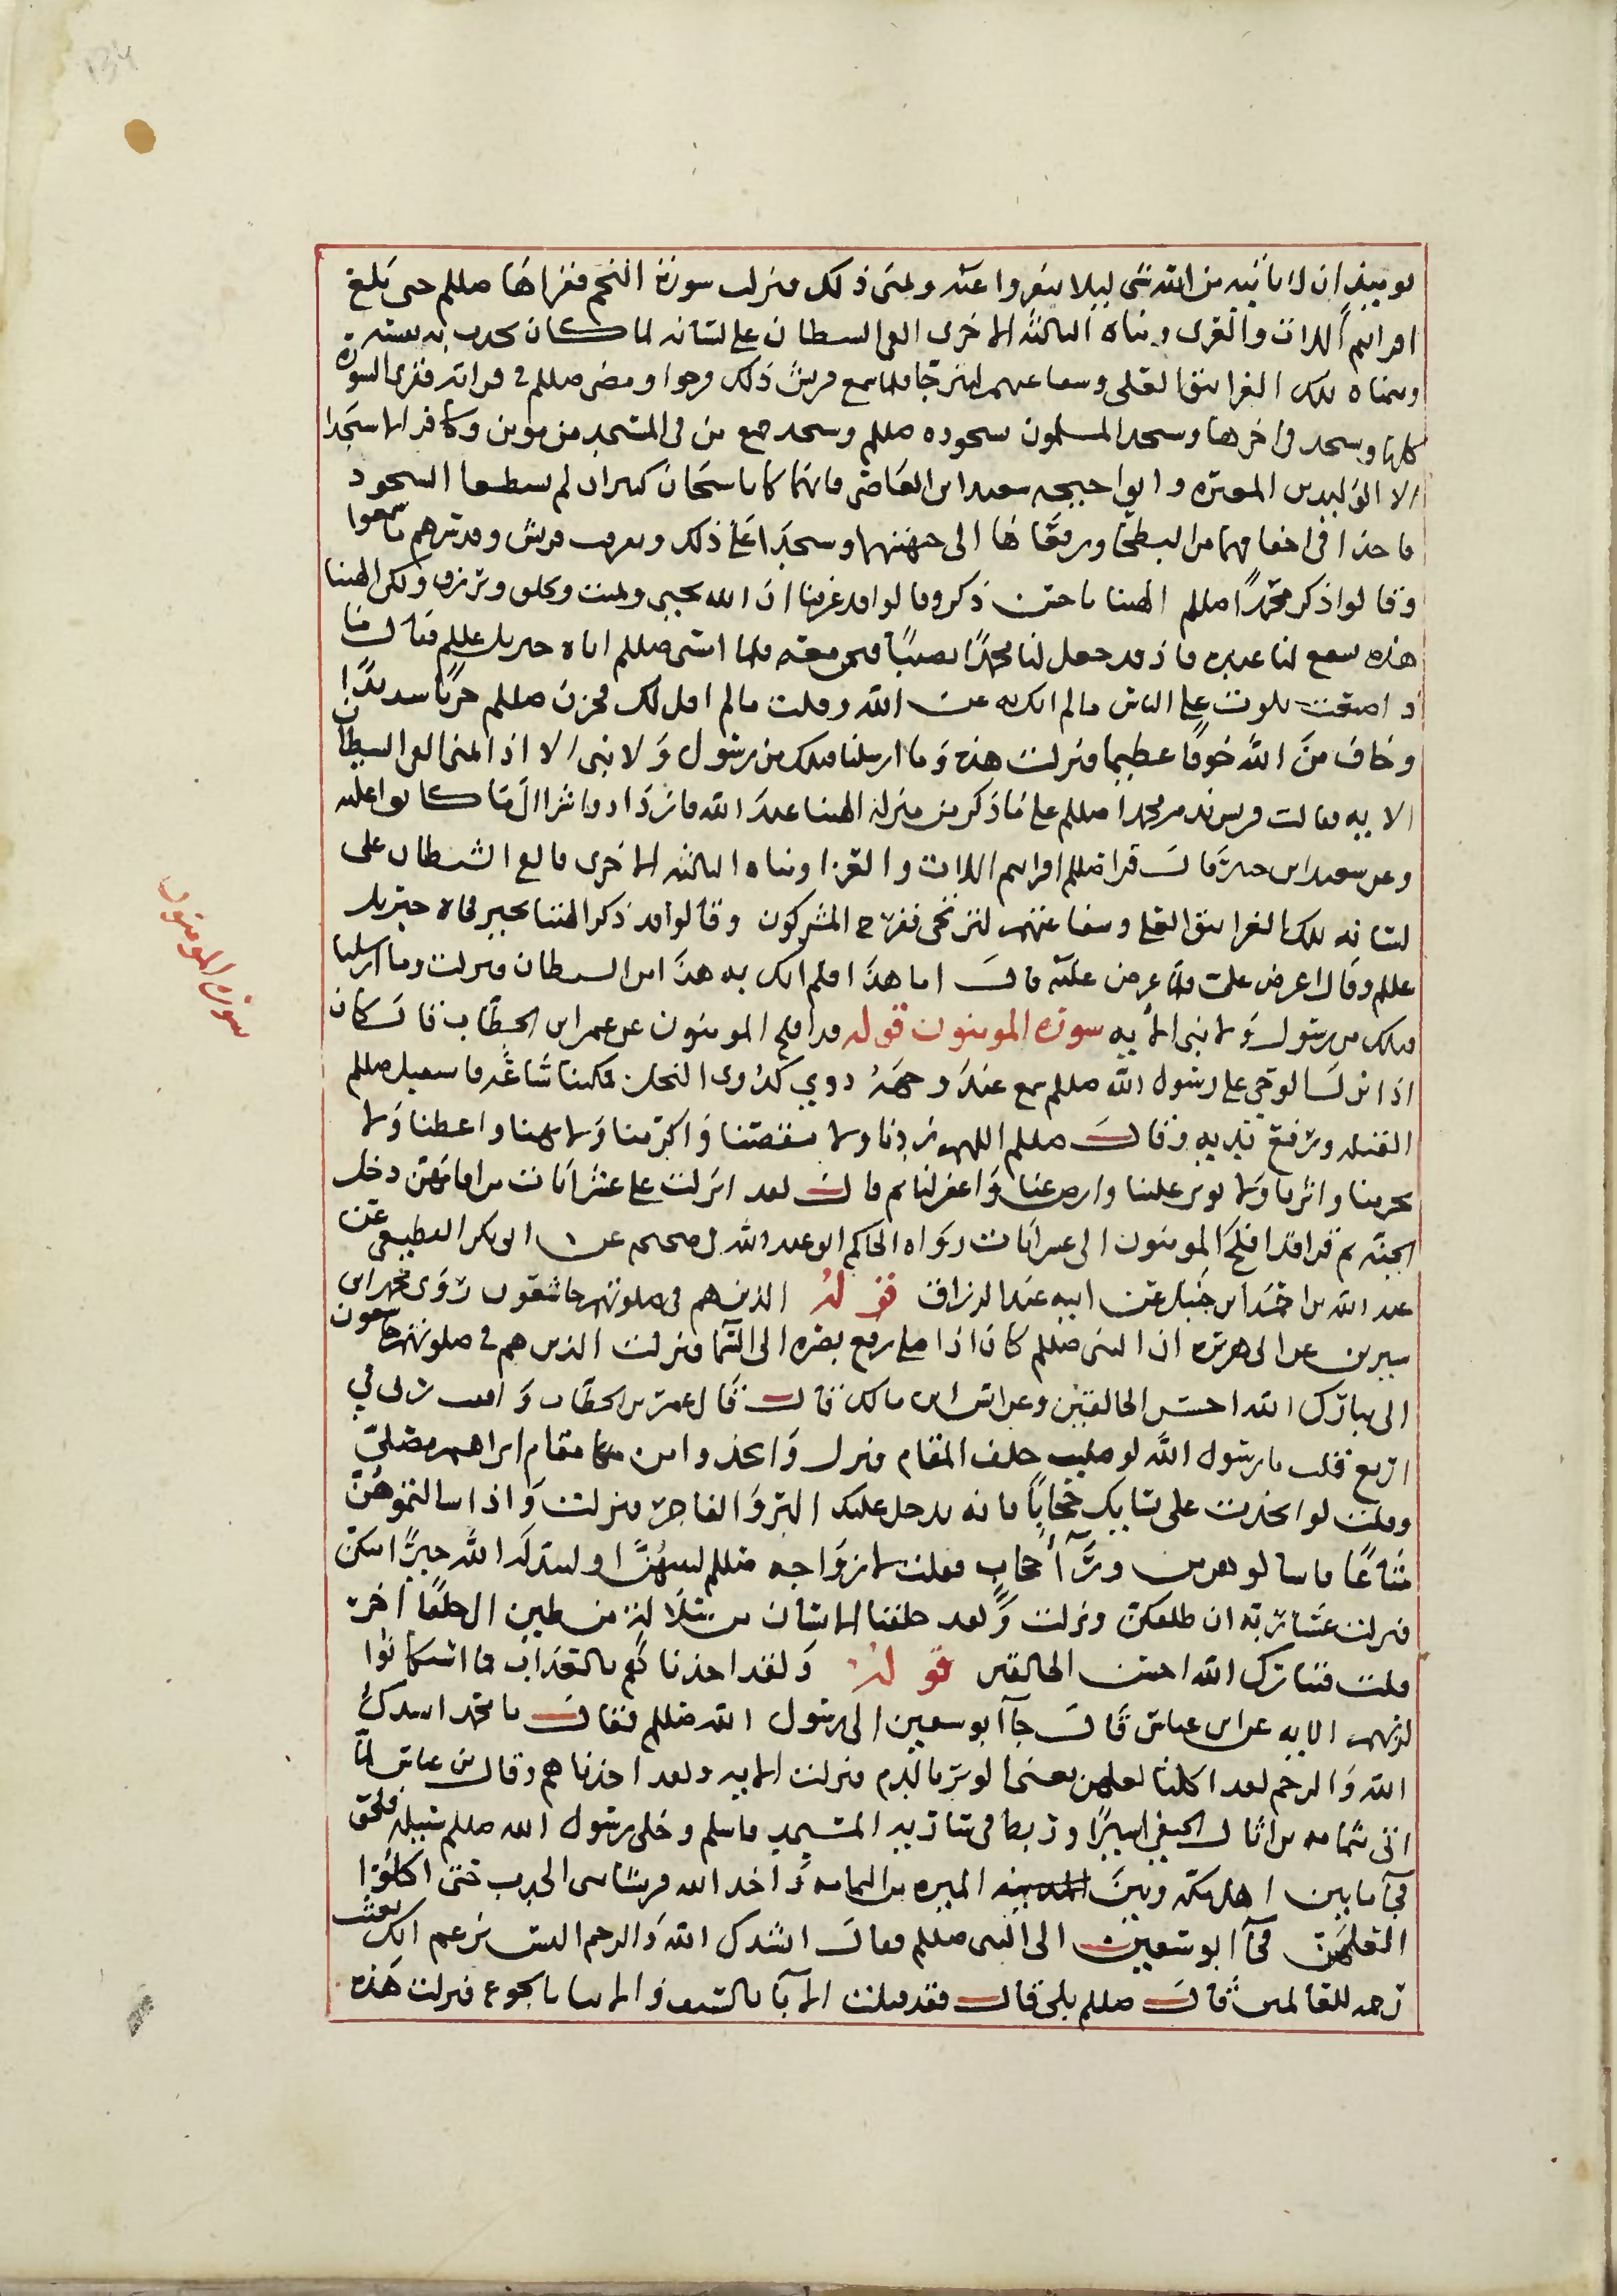 يوميذ ان لا ياتيه من الله شي ليلا ينفروا عنه وتمنى ذلك فنزلت سورة النجم فقراها صللم حتى بلغ
افرايتم اللات والعزى ومناة الثالثة الاخرى القى الشيطان على لسانه لما كان يحدث به نفسه
وتمناه تلك الغرانيق العلى وشفاعتهم لترتجا فلما سمع قريش ذلك فرحوا ومضى صللم في قراته فقرى السورة
كلها وسجد في اخرها وسجد المسلمون بسجوده صللم وسجد جميع من في المسجد من مومن وكافر الا سجدا
الا الوليد بن المغيرة وابوا حيحه سعيد ابن العاص فانهما كانا شيخان كبيران لم يستطيعا السجود
فاخذا في اخفا فهما من البطحا ورفعاها الى جبهتهما وسجدا على ذلك وتفرقت قريش وقد سرهم ما سمعوا
وقالوا ذكر محمدا صللم الهتنا باحسن ذكر وقالوا قد عرفنا ان الله يحيى ويميت ويخلق ويرزق ولكن الهتنا
هذه تشفع لنا عنده فاذ قد جعل لنا محمدا نصيبا فنحن معه فلما امسى صللم اتاه جبريل عللم فقال ما
ذا صنعت تلوت على الناس ما لم اتك به عن الله وقلت ما لم اقل لك فحزن صللم حزنا شديدا
وخاف من الله خوفا عظيما فنزلت هذه وما ارسلنا قبلك من رسول ولا نبي الا اذا تمنى القى الشيطان
الاية فقالت قريش ندم محمدا صللم على ما ذكر من منزلة الهتنا عند الله فازدادوا شرا الى ما كانوا عليه
وعن سعيد ابن جبير قال قرا صللم افرايتم اللات والعزا ومناة الثالثة الاخرى فالقى الشيطان على
لسانه تلك الغرانيق العلى وشفاعتهن لترتجى ففرح المشركون وقالوا قد ذكر الهتنا بخير فجاه جبريل
عللم وقال اعرض علي فلما عرض عليه قال اما هذا فلم اتك به هذا من الشيطان فنزلت وما ارسلنا
قبلك من رسول ولا نبي الاية سورة المومنون قوله قد افلح المومنون عن عمر ابن الخطاب قال كان
اذا انزل الوحي على رسول الله صللم سمع عند وجهه دوي كدوى النحل فمكثنا ساعة فاستقبل صللم
القبلة ورفع يديه وقال صللم اللهم زدنا ولا تنقصنا واكرمنا ولا تهنا واعطنا ولا
تحرمنا واثرنا ولا توثر علينا وارض عنا واغفر لنا ثم قال لقد انزلت على عشر ايات من اقامهن دخل
الجنة ثم قرا قد افلح المومنون الى عشر ايات رواه الحاكم ابو عبد الله في صحيحه عن ابو بكر القطيعي عن
عبد الله بن احمد ابن حنبل عن ابيه عبد الرزاق قوله الذين هم في صلوتهم خاشعون روى محمد ابن
سيرين عن ابى هريرة ان النبي صللم كان اذا صلى رفع بصره الى السما فنزلت الذين هم في صلوتهم خاشعون
الى تبارك الله احسن الخالقين وعن انس ابن مالك قال قال عمر بن الخطاب وافقت ربى في
اربع قلت يا رسول الله لو صليت خلف المقام فنزل واتخذوا من مقام ابراهيم مصلى
وقلت لو اتخذت على نسايك حجابا فانه يدخل عليك البر والفاجر فنزلت واذا سالتموهن
متاعا فاسالوهن من ورآ حجاب فقلت لازواجه صللم لتنتهن او ليبدله الله خيرا منكن
فنزلت عسا ربه ان طلقكن ونزلت ولقد خلقنا الانسان من سلالة من طين الى خلقا اخر
قلت فتبارك الله احسن الخالقين قوله ولقد اخذناهم بالعذاب فما استكانوا
لربهم الاية عن ابن عباس قال جآ ابو سفين الى رسول الله صللم فقال يا محمد انشدك
الله والرحم لقد اكلنا العلهن يعنى الوبر بالدم فنزلت الاية ولقد اخذناهم وقال بن عباس لما
اتى ثمامه بن اثال الحنفي اسيرا وربط في سارية المسجد فاسلم وخلى رسول الله صللم سبيله فلحق
في ما بين اهل مكة وبين الميره من اليمامه واخذ الله قريشا بسنى الجدب حتى اكلوا
العلهن فجآ ابو سفين الى النبي صللم فقال انشدك الله والرحم اليس تزعم انك بعثت
رحمه للعالمين فقال صللم بلى قال فقد قتلت الابآ بالسيف والابنا بالجوع فنزلت هذه
سورة المومنون
134